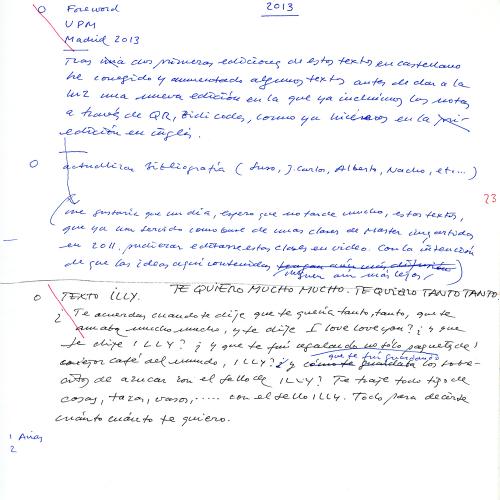 O Foreword 2013
UPM
Madrid 2013
Tras una dos primeras ediciones de estos textos en castellano
he corregido y aumentado algunos textos antes de dar a la
luz una nueva edición en la que ya incluimos las notas
a través de QR, Bidi codes, como ya hicimos en la pri-
edición en inglés.
O actualizar bibliografía ( Suso, J. Carlos, Alberto, Nacho, etc...)
23
(me gustaría que un día, espero que no tarde mucho, estos textos,
que ya han servido como base de unas clases de Master impartidas
en 2011, pudieran editarse estas clases en video. Con la intención
de que las ideas aquí contenidas tengan aún más difusión
lleguen aún más lejos)
TE QUIERO MUCHO MUCHO. TE QUIERO TANTO TANTO.
O TEXTO ILLY.
2 Te acuerdas cuando te dije que te quería tanto, tanto, que te
amaba mucho mucho, y te dije I love love you? ¿y que
te dije ILLY? ¿y que te fui regalando no sólo paquetes del
mejor café del mundo, ILLY? ¿y como te guardaba los sobre-
que te fui guardando
citos de azucar con el sello de ILLY? Te traje todo tipo de
cosas, tazas, vasos, ..... con el sello ILLY. Todo para decirte
cuánto cuánto te quiero.
1 Añas
2